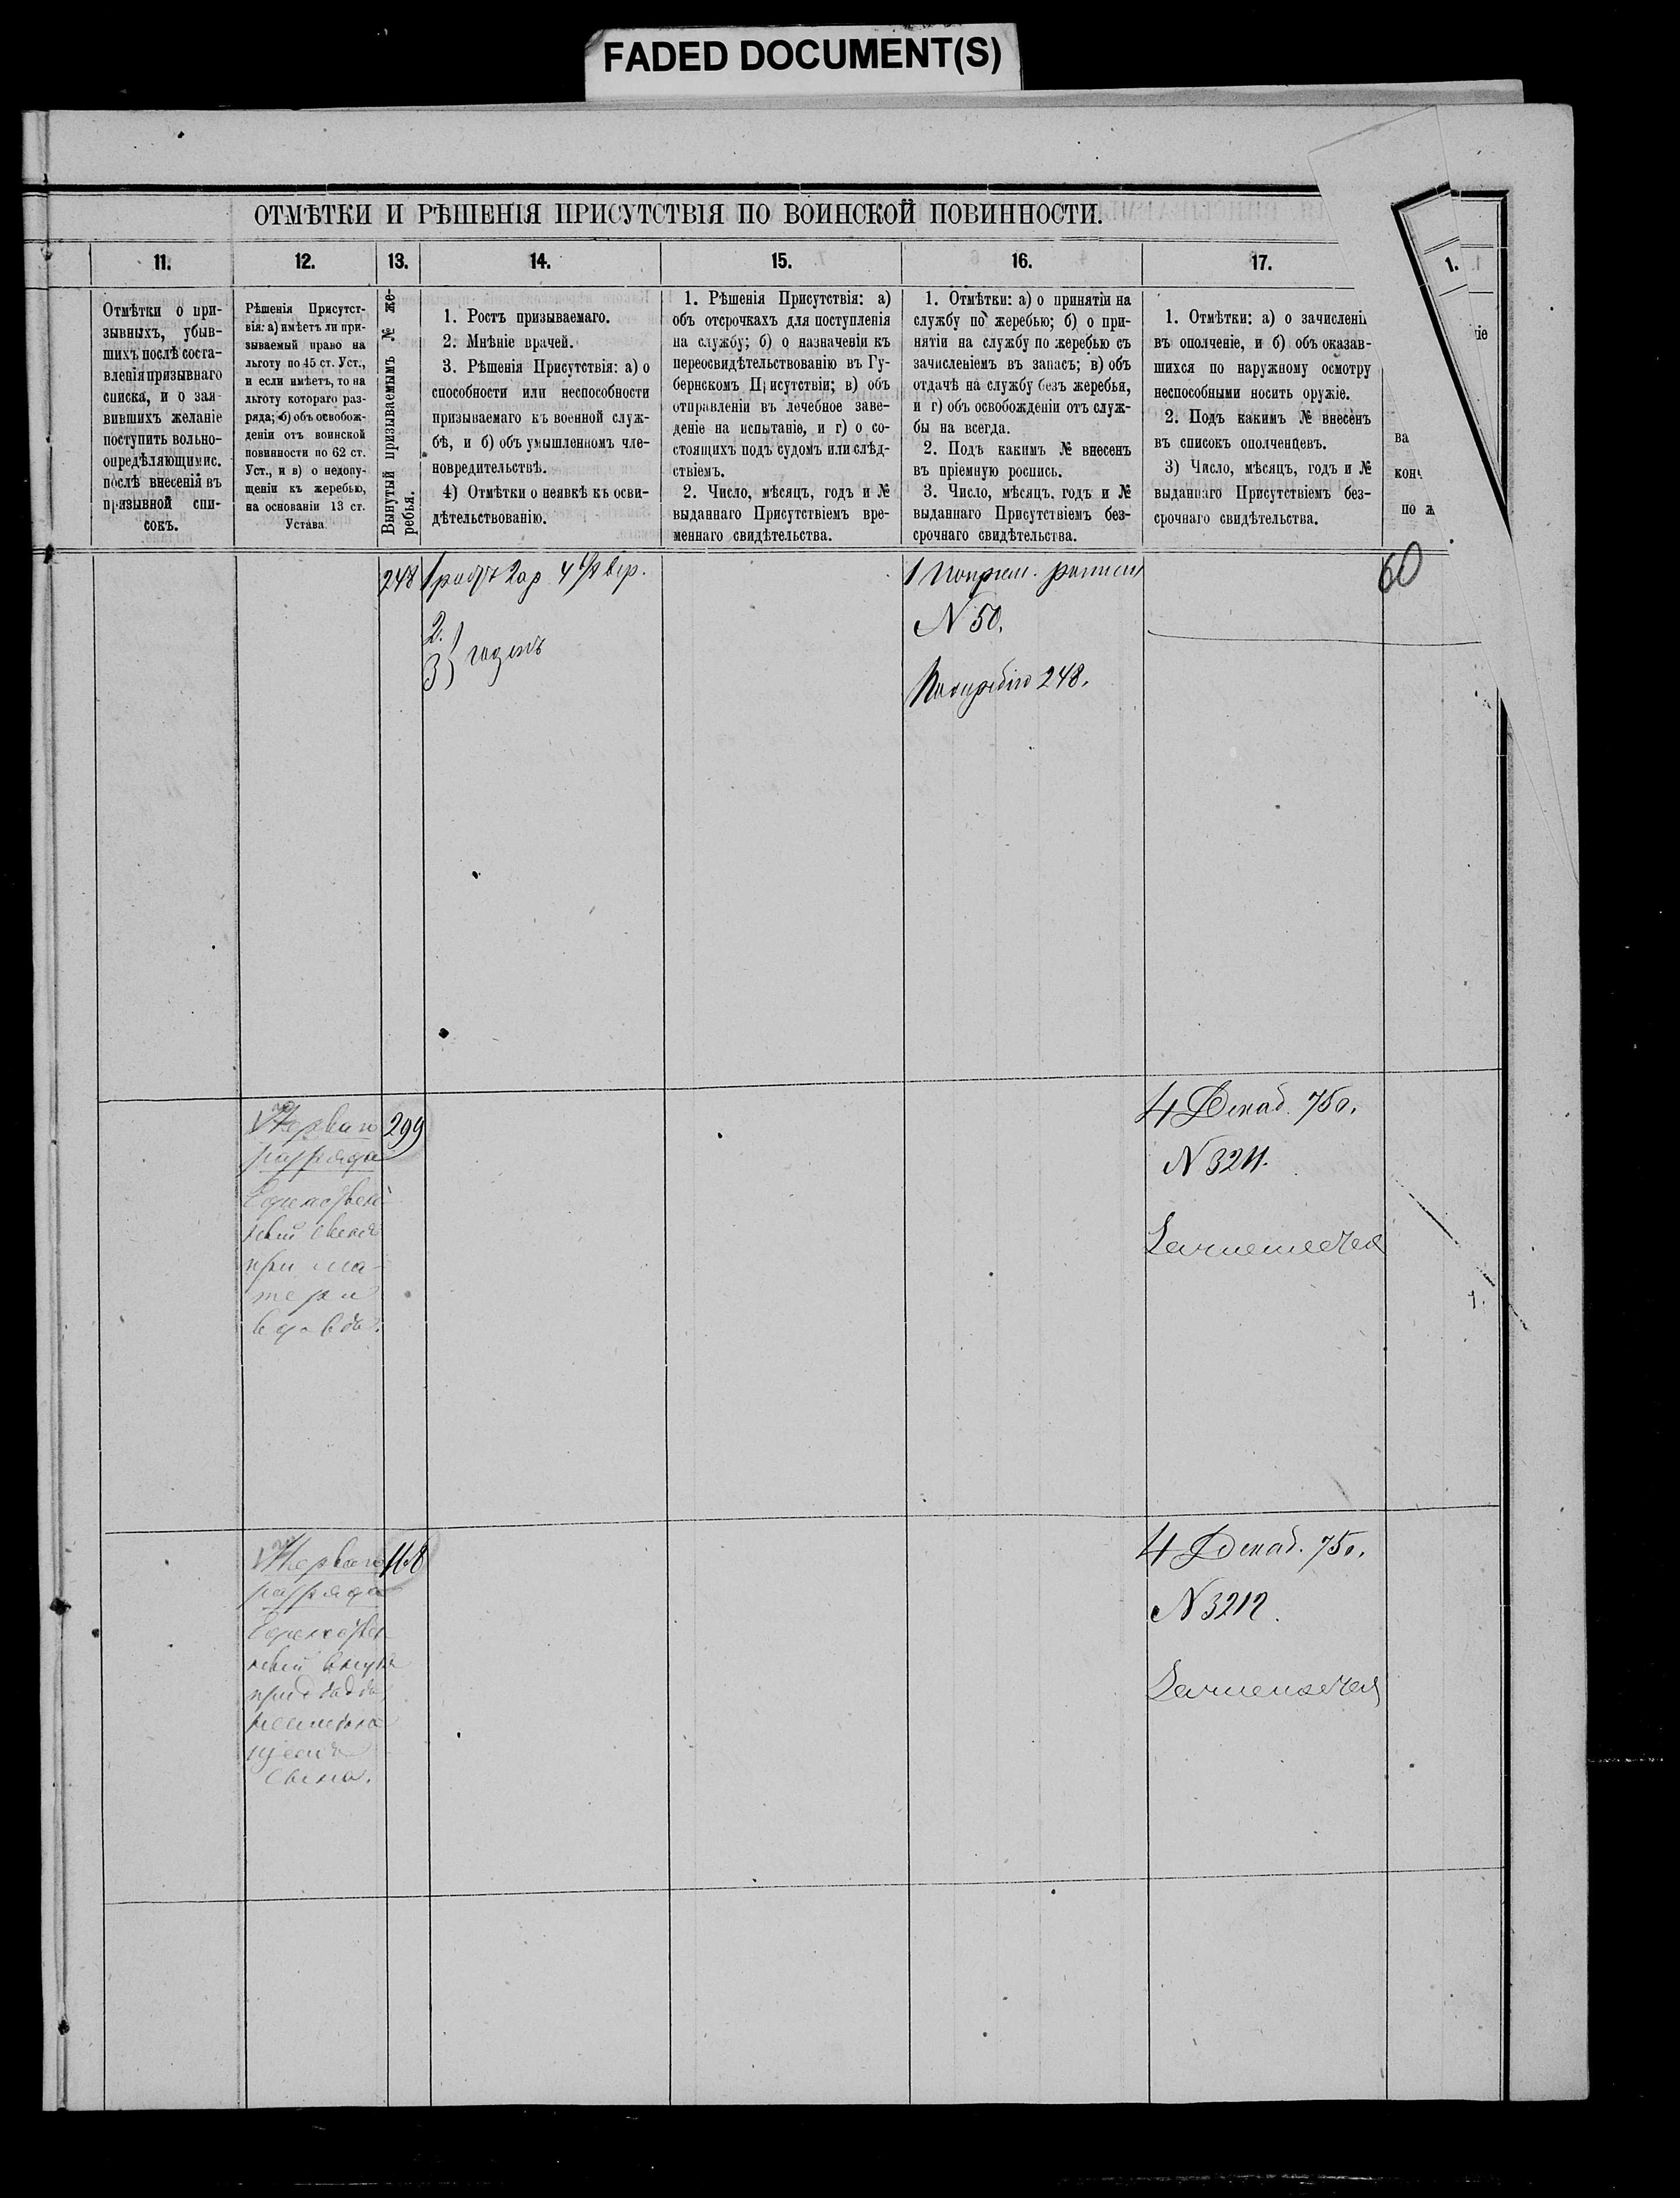 FADED DOCUMENT(S)
ОТМѢТКИ И РѢШЕНІЯ ПРИСУТСТВІЯ ПО ВОИНСКОЙ ПОВИННОСТИ.
11.
12.
13.
14.
15.
16.
17.
1.
Отмѣтки о при-
зывныхъ, убыв-
шихъ послѣ соста-
вленія призывнаго
списка, и о зая-
вившихъ желаніе
поступить вольно-
опредѣляющимис.
послѣ внесенія въ
призывной спи-
сокъ.
Рѣшенія Присутст-
вія: а) имѣетъ ли при-
зываемый право на
льготу по 45 ст. Уст.,
и если имѣетъ, то на
льготу котораго раз-
ряда; б) объ освобож-
деніи отъ воинской
повинности по 62 ст.
Уст., и в) о недопу-
щеніи къ жеребью,
на основаніи 13 ст.
Устава
Вынутый призываемымъ № же-
ребья.
1. Ростъ призываемаго.
2. Мнѣніе врачей.
3. Рѣшенія Присутствія: а) о
способности или неспособности
призываемаго къ военной служ-
бѣ, и б) объ умышленномъ чле-
новредительствѣ.
4) Отмѣтки о неявкѣ къ осви-
дѣтельствованію.
1. Рѣшенія Присутствія: а)
объ отсрочкахъ для поступленія
на службу; б) о назначеніи къ
переосвидѣтельствованію въ Гу-
бернскомъ Присутствіи; в) объ
отправленіи въ лечебное заве-
деніе на испытаніе, и г) о со-
стоящихъ подъ судомъ или слѣд-
ствіемъ.
2. Число, мѣсяцъ, годъ и №
выданнаго Присутствіемъ вре-
меннаго свидѣтельства.
1. Отмѣтки: а) о принятіи на
службу по жеребью; б) о при-
нятіи на службу по жеребью съ
зачисленіемъ въ запасъ; в) объ
отдачѣ на службу безъ жеребья,
и г) объ освобожденіи отъ служ-
бы на всегда.
2. Подъ какимъ № внесенъ
въ пріемную роспись.
3. Число, мѣсяцъ, годъ и №
выданнаго Присутствіемъ без-
срочнаго свидѣтельства.
1. Отмѣтки: а) о зачисленіи
въ ополченіе, и б) объ оказав-
шихся по наружному осмотру
неспособными носить оружіе.
2. Подъ какимъ № внесенъ
въ списокъ ополченцевъ.
3) Число, мѣсяцъ, годъ и №
выданнаго Присутствіемъ без-
срочнаго свидѣтельства.
ва
кон
по
іе
248
2 ар. 4 4/8 вер.
2.
3) годенъ
1 По пріем. росписи
N 50.
По жребію 248.
60
Перваго
разряда
Единствен-
ный сынъ
при ма-
тери
вдовѣ.
299
4 Декаб. 75 г.
N 3211.
Перваго
разряда
Единствен-
ный внукъ
сына.
168
4 Декаб. 75 г.
N 3212.